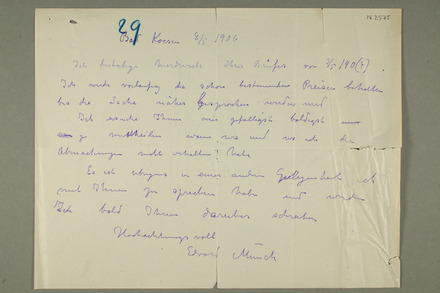 N 2575
29
Bad Koesen 8/5 1906
Ich bestätige hierdurch Ihres Briefes von 7/5 190(?)
Ich werde vorläufig die schon bestimmten Preisen behalten
bis die Sache näher besprochen werden
Ich ersuche Ihnen mir gefälligst baldigst
zu mittheilen wann wie und wo ich die
Abmachungen nicht erhalten habe
Es ist übrigens in einer andern Gelegenheit ich
mit Ihnen zu sprechen habe und werden
Ich bald Ihnen darüber schreiben
Hochachtungsvoll
Edvard Munch